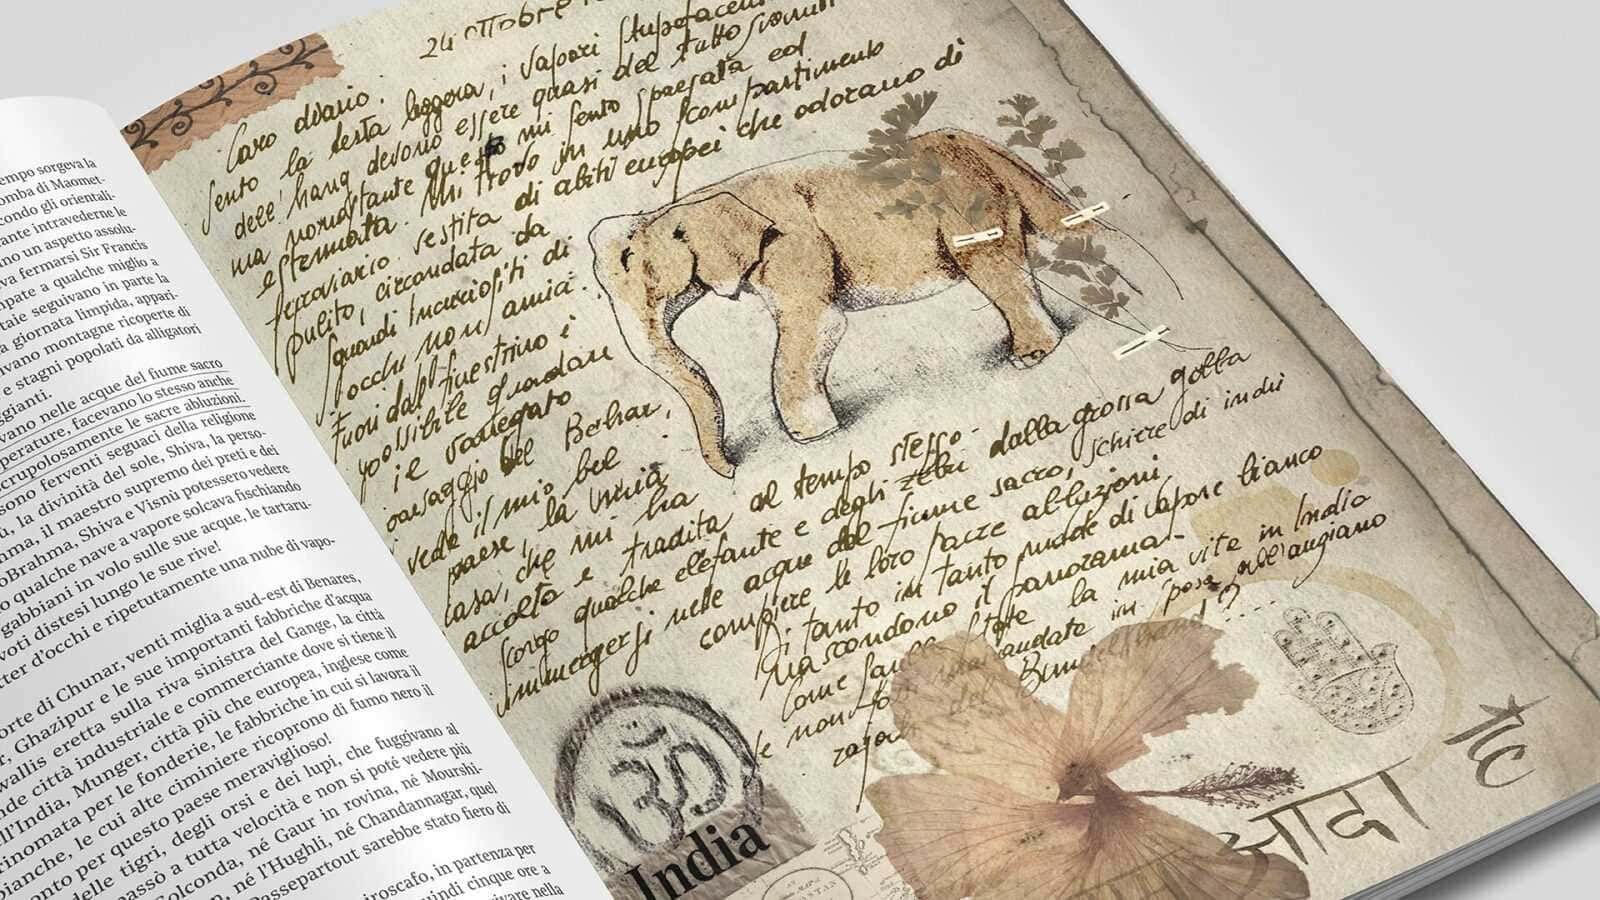 empo sorgeva la
omba di Maomet-
condo gli orientali-
ante intravederne le
no un aspetto assolu-
va fermarsi Sir Francis
npate a qualche miglio a
taie seguivano in parte la
a giornata limpida, appari-
vano montagne ricoperte di
e stagni popolati da alligatori
ggianti.
vano nelle acque del fiume sacro
perature, facevano lo stesso anche
scrupolosamente le sacre abluzioni.
sono ferventi seguaci della religione
ù, la divinità del sole, Shiva, la perso-
mma, il maestro supremo dei preti e dei
oBrahma, Shiva e Visnù potessero vedere
o qualche nave a vapore solcava fischiando
gabbiani in volo sulle sue acque, le tartaru-
voti distesi lungo le sue rive!
tter d'occhi e ripetutamente una nube di vapo-
orte di Chunar, venti miglia a sud-est di Benares,
r, Ghazipur e le sue importanti fabbriche d'acqua
wallis eretta sulla riva sinistra del Gange, la città
nde città industriale e commerciante dove si tiene il
ll'India, Munger, città più che europea, inglese come
rinomata per le fonderie, le fabbriche in cui si lavora il
bianche, le cui alte ciminiere ricoprono di fumo nero il
onto per questo paese meraviglioso!
delle tigri, degli orsi e dei lupi, che fuggivano al
passò a tutta velocità e non si poté vedere più
Golconda, né Gaur in rovina, né Mourshi-
n, né l'Hughli, né Chandannagar, quel
Passepartout sarebbe stato fiero di
iroscafo, in partenza per
quindi cinque ore a
rivare nella
24 ottobre
Caro diario.
Sento la testa leggera, i vapori stupefacenti
dell'hang devono essere quasi del tutto svaniti
ma nonostante questo mi sento spaesata ed
estenuata. Mi trovo in uno scompartimento
ferroviario vestita di abiti europei che odorano di
pulito, circondata da
sguardi incuriositi di
occhi non amici.
Fuori dal finestrino è
possibile guardare
il variegato
paesaggio del Behar,
vede il mio bel
paese, la mia
casa, che mi ha
accolta e tradita al tempo stesso.
Scorgo qualche elefante e degli zebù dalla grossa gobba
immergersi nelle acque del fiume sacro, schiere di indù
compiere le loro sacre abluzioni.
Di tanto in tanto nude di vapore bianco
nascondono il panorama.
Come sarebbe state la mia vita in India
se non fossi andate in sposa all'anziano
rajah del Bundelkhand?....
India
आदा